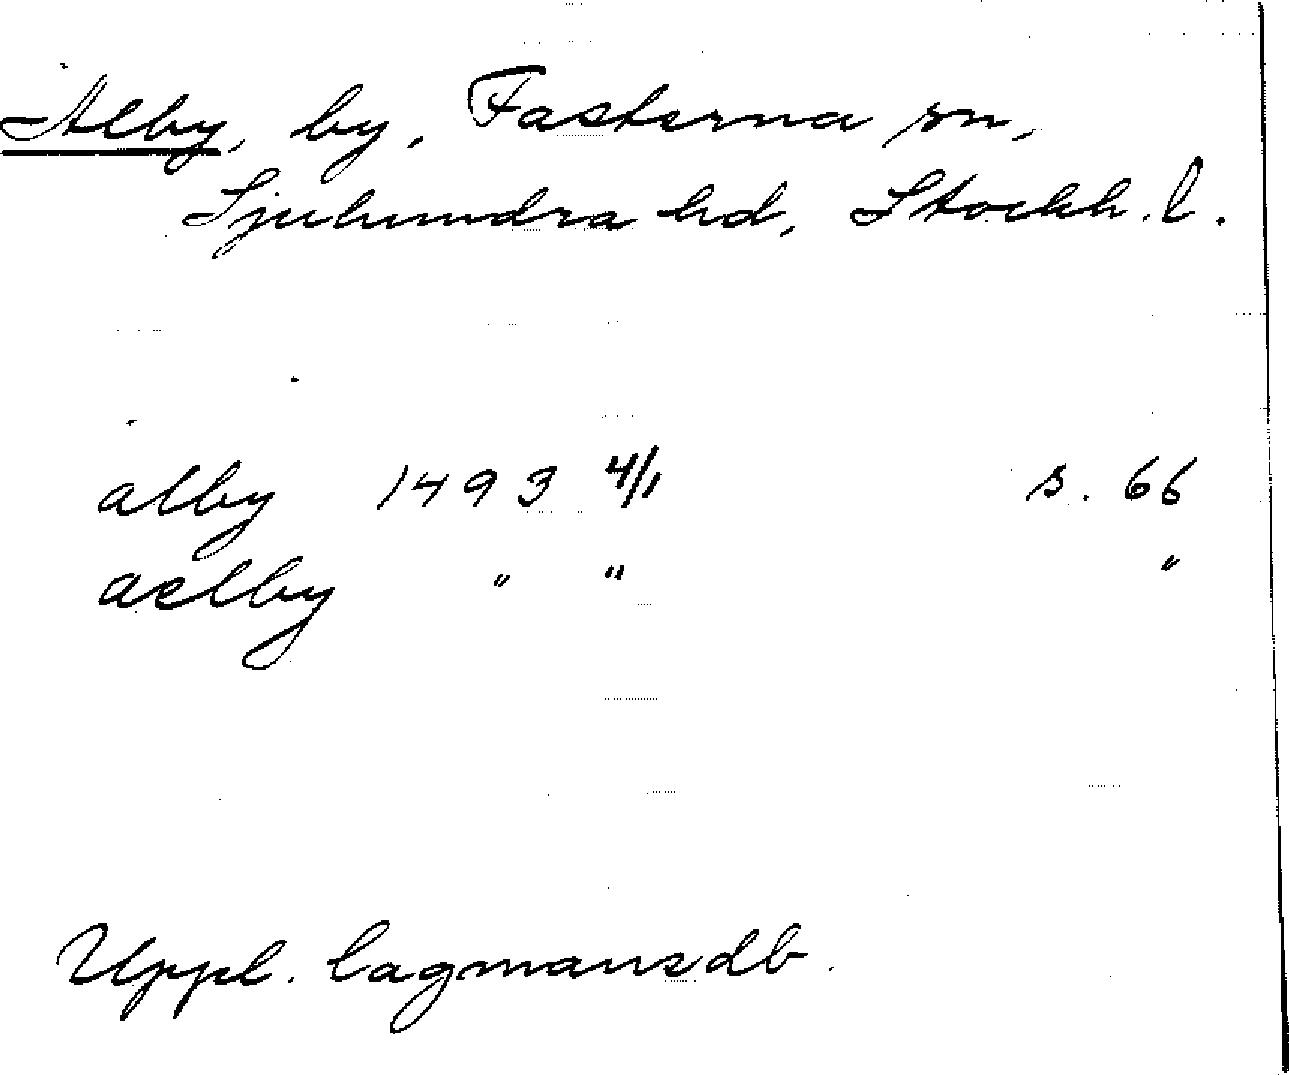 Alby, by, Fasterna sn,
Sjuhundra hd, Stockh. l.
alby 1493 4/1 s. 66
aelby " " "
Uppl. lagmansdb.